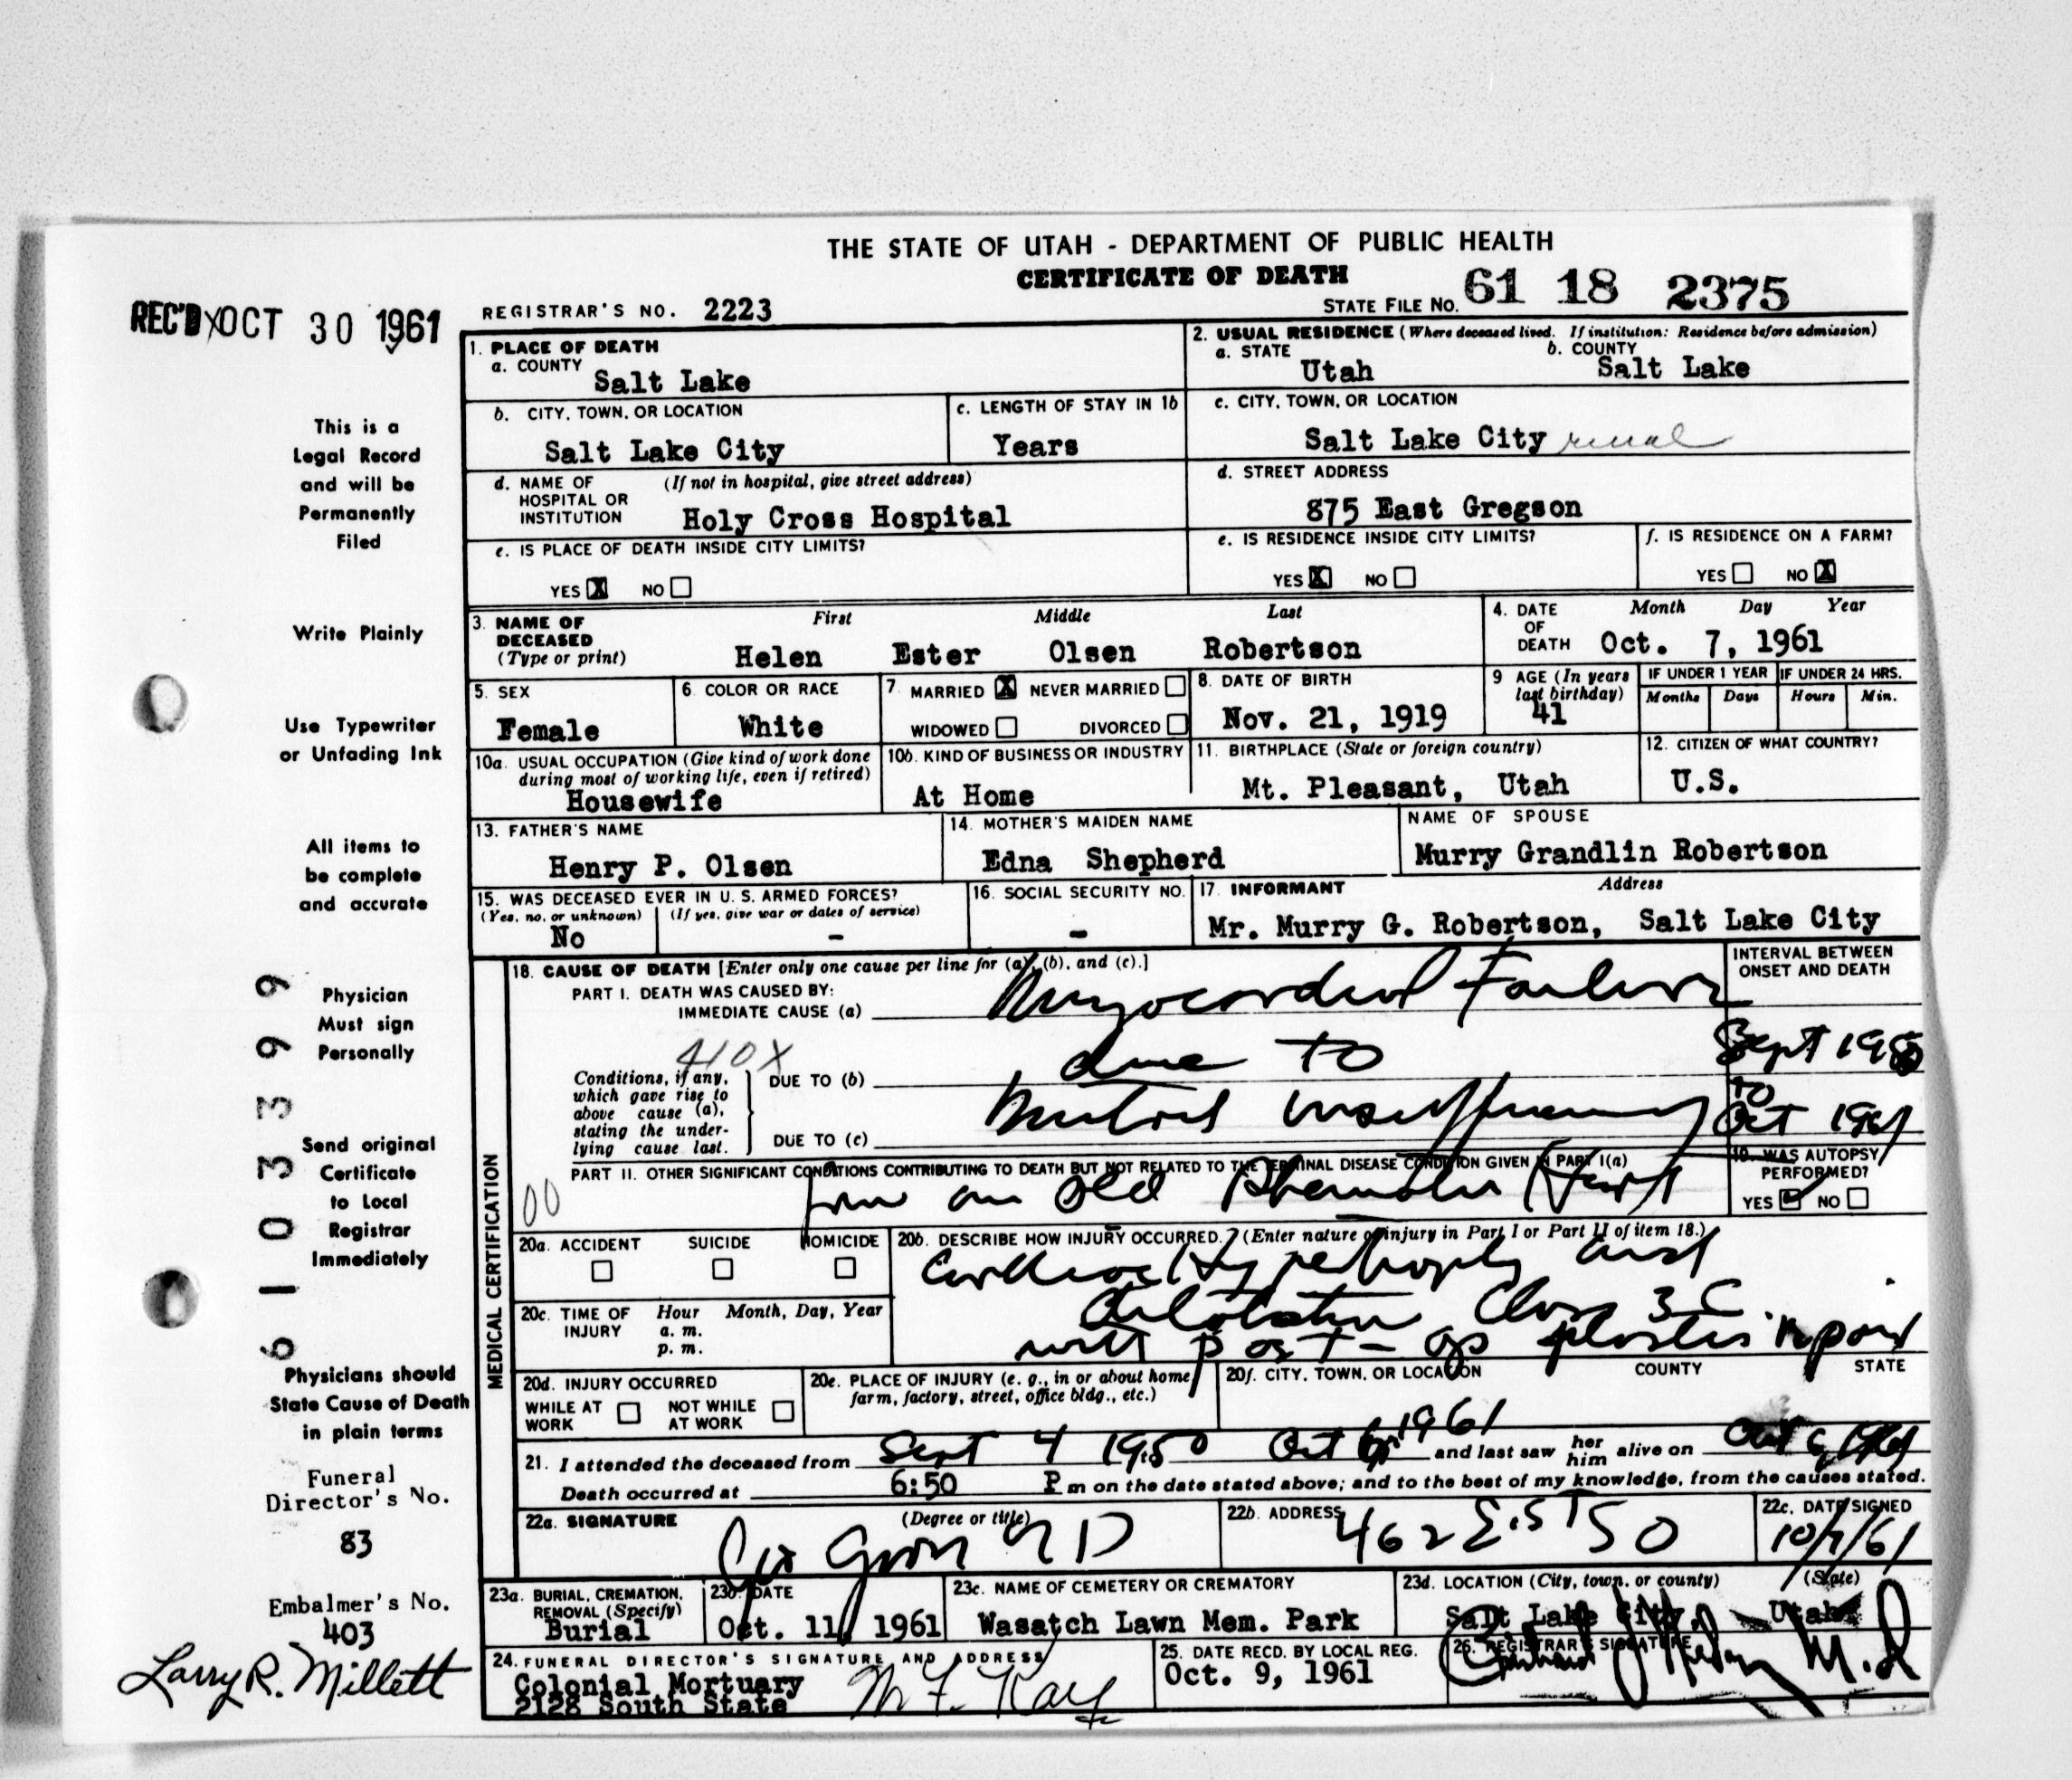 THE STATE OF UTAH - DEPARTMENT OF PUBLIC HEALTH
CERTIFICATE OF DEATH
REC'D OCT 30 1961
REGISTRAR'S NO. 2223
STATE FILE NO. 61 18 2375
1. PLACE OF DEATH
a. COUNTY
Salt Lake
2. USUAL RESIDENCE (Where deceased lived. If institution: Residence before admission)
a. STATE b. COUNTY
Utah Salt Lake
b. CITY, TOWN, OR LOCATION
Salt Lake City
c. LENGTH OF STAY IN 1b
Years
c. CITY, TOWN, OR LOCATION
Salt Lake City rural
d. NAME OF HOSPITAL OR INSTITUTION (If not in hospital, give street address)
Holy Cross Hospital
d. STREET ADDRESS
875 East Gregson
e. IS PLACE OF DEATH INSIDE CITY LIMITS?
YES X NO
e. IS RESIDENCE INSIDE CITY LIMITS?
YES X NO
f. IS RESIDENCE ON A FARM?
YES NO X
3. NAME OF DECEASED (Type or print)
First Middle Last
Helen Ester Olsen Robertson
4. DATE OF DEATH Month Day Year
Oct. 7, 1961
5. SEX
Female
6. COLOR OR RACE
White
7. MARRIED X NEVER MARRIED
WIDOWED DIVORCED
8. DATE OF BIRTH
Nov. 21, 1919
9 AGE (In years last birthday)
41
IF UNDER 1 YEAR
Months Days
IF UNDER 24 HRS.
Hours Min.
10a. USUAL OCCUPATION (Give kind of work done during most of working life, even if retired)
Housewife
10b. KIND OF BUSINESS OR INDUSTRY
At Home
11. BIRTHPLACE (State or foreign country)
Mt. Pleasant, Utah
12. CITIZEN OF WHAT COUNTRY?
U.S.
13. FATHER'S NAME
Henry P. Olsen
14. MOTHER'S MAIDEN NAME
Edna Shepherd
NAME OF SPOUSE
Murry Grandlin Robertson
15. WAS DECEASED EVER IN U. S. ARMED FORCES?
(Yes, no, or unknown) (If yes, give war or dates of service)
No -
16. SOCIAL SECURITY NO.
-
17. INFORMANT Address
Mr. Murry G. Robertson, Salt Lake City
MEDICAL CERTIFICATION
18. CAUSE OF DEATH [Enter only one cause per line for (a), (b), and (c).]
PART I. DEATH WAS CAUSED BY:
IMMEDIATE CAUSE (a) Myocardial Failure
INTERVAL BETWEEN ONSET AND DEATH
410X
Conditions, if any, which gave rise to above cause (a), stating the underlying cause last.
DUE TO (b) due to
Sept 1950
to
DUE TO (c) Mitral insufficiency
Oct 1961
PART II. OTHER SIGNIFICANT CONDITIONS CONTRIBUTING TO DEATH BUT NOT RELATED TO THE TERMINAL DISEASE CONDITION GIVEN IN PART I(a)
00
from an old Rheumatic Heart
19. WAS AUTOPSY PERFORMED?
YES NO
20a. ACCIDENT SUICIDE HOMICIDE
20b. DESCRIBE HOW INJURY OCCURRED. (Enter nature of injury in Part I or Part II of item 18.)
Cardiac Hypertrophy and
dilatation Class 3 C
with post-op plastic repair
20c. TIME OF INJURY Hour Month, Day, Year
a. m.
p. m.
20d. INJURY OCCURRED
WHILE AT WORK NOT WHILE AT WORK
20e. PLACE OF INJURY (e. g., in or about home, farm, factory, street, office bldg., etc.)
20f. CITY, TOWN, OR LOCATION COUNTY STATE
21. I attended the deceased from Sept 4 1950 Oct 6 1961 and last saw her him alive on Oct 6, 1961
Death occurred at 6:50 P m on the date stated above; and to the best of my knowledge, from the causes stated.
22a. SIGNATURE (Degree or title)
M D
22b. ADDRESS
462 E. 5T SO
22c. DATE SIGNED
10/7/61
23a. BURIAL, CREMATION, REMOVAL (Specify)
Burial
23b. DATE
Oct. 11, 1961
23c. NAME OF CEMETERY OR CREMATORY
Wasatch Lawn Mem. Park
23d. LOCATION (City, town, or county) (State)
Salt Lake City, Utah
24. FUNERAL DIRECTOR'S SIGNATURE AND ADDRESS
Colonial Mortuary
2128 South State
M F. Kay
25. DATE RECD. BY LOCAL REG.
Oct. 9, 1961
26. REGISTRAR'S SIGNATURE
M.D
This is a
Legal Record
and will be
Permanently
Filed
Write Plainly
Use Typewriter
or Unfading Ink
All items to
be complete
and accurate
Physician
Must sign
Personally
Send original
Certificate
to Local
Registrar
Immediately
Physicians should
State Cause of Death
in plain terms
Funeral
Director's No.
83
Embalmer's No.
403
Larry R. Millett
6 1 0 3 3 9 9